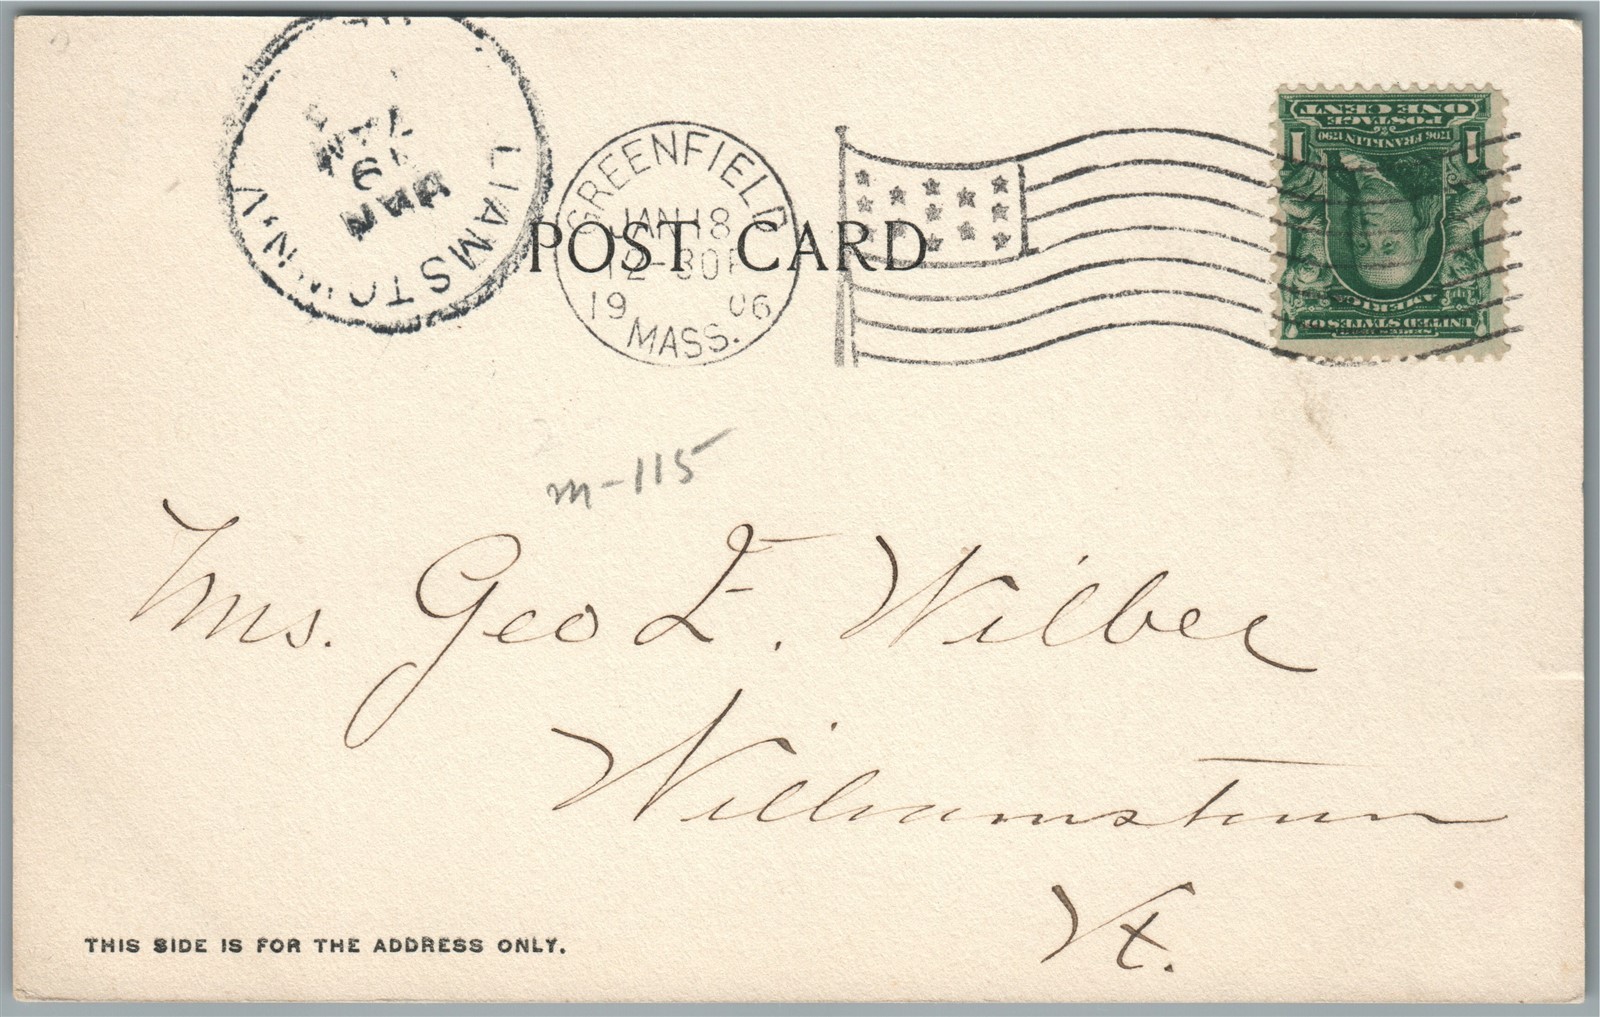 LIAMSTOWN, V
JAN
19
7 AM
GREENFIELD
JAN 18
12-30P
19 06
MASS.
POST CARD
UNITED STATES OF
AMERICA
1706 FRANKLIN 1790
POSTAGE
1 ONE CENT 1
m-115
Mrs. Geo E. Wilber
Williamstown
Vt.
THIS SIDE IS FOR THE ADDRESS ONLY.